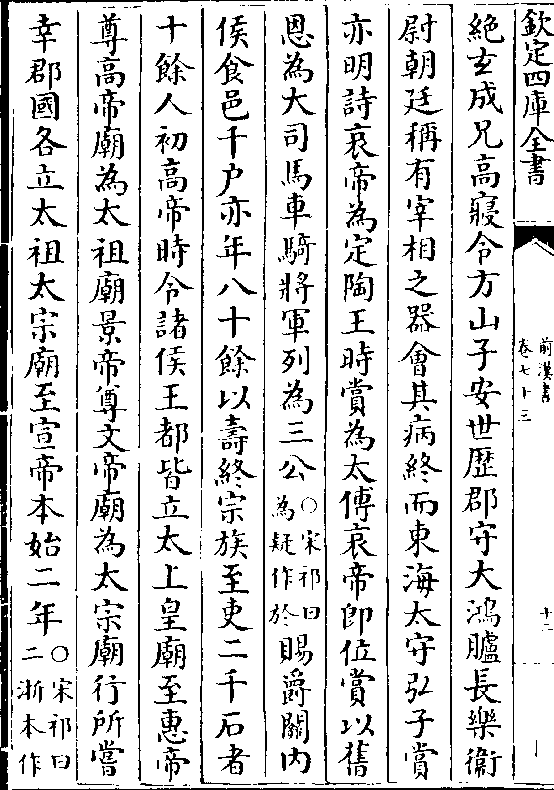 欽定四庫全書
前漢書
卷七十三
十二
絶玄成兄高寢令方山子安世歴郡守大鴻臚長樂衛
尉朝廷稱有宰相之器會其病終而東海太守弘子賞
亦明詩哀帝為定陶王時賞為太傅哀帝即位賞以舊
恩為大司馬車騎將軍列為三公○宋祁曰為疑作於賜爵關内
侯食邑千户亦年八十餘以壽終宗族至吏二千石者
十餘人初髙帝時令諸侯王都皆立太上皇廟至惠帝
尊高帝廟為太祖廟景帝尊文帝廟為太宗廟行所嘗
幸郡國各立太祖太宗廟至宣帝本始二年○宋祁曰二浙本作